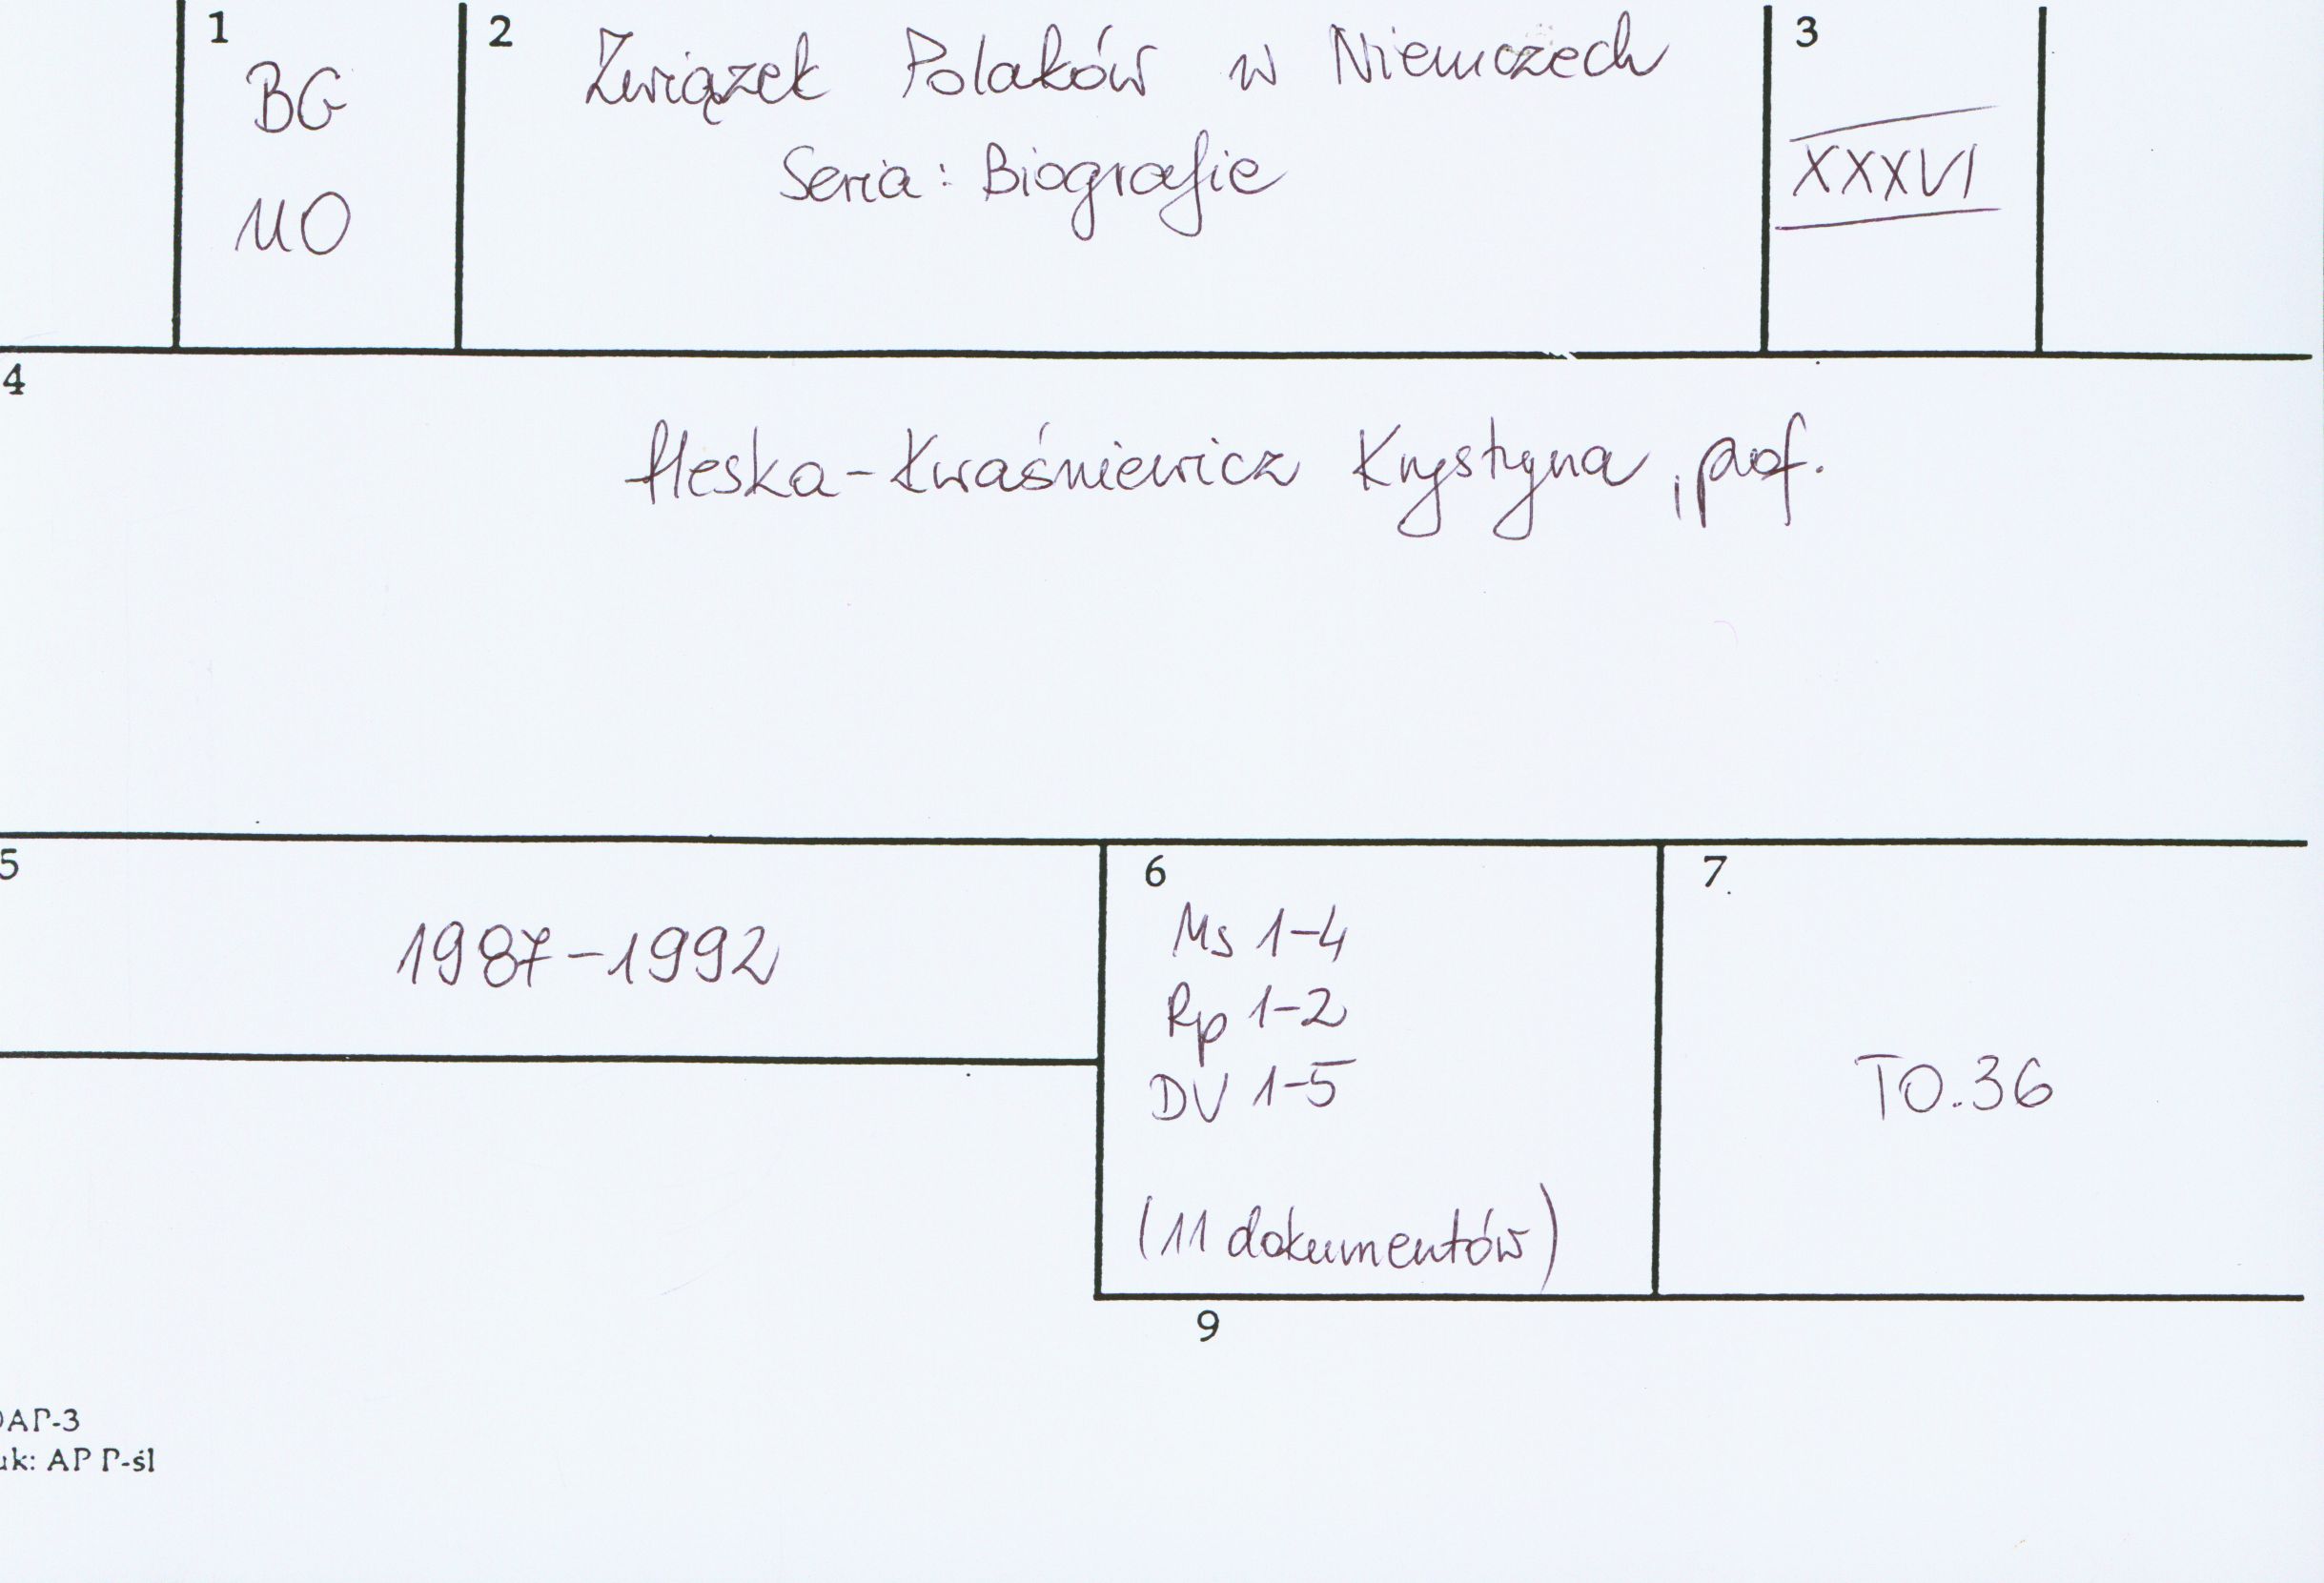 1
BG
110
2
Związek Polaków w Niemczech
Seria: Biografie
3
XXXVI
4
Heska-Kwaśniewicz Krystyna, prof.
5
1987-1992
6
Ms 1-4
Rp 1-2
DV 1-5
(11 dokumentów)
7
TO.36
9
AP-3
uk: AP P-śl